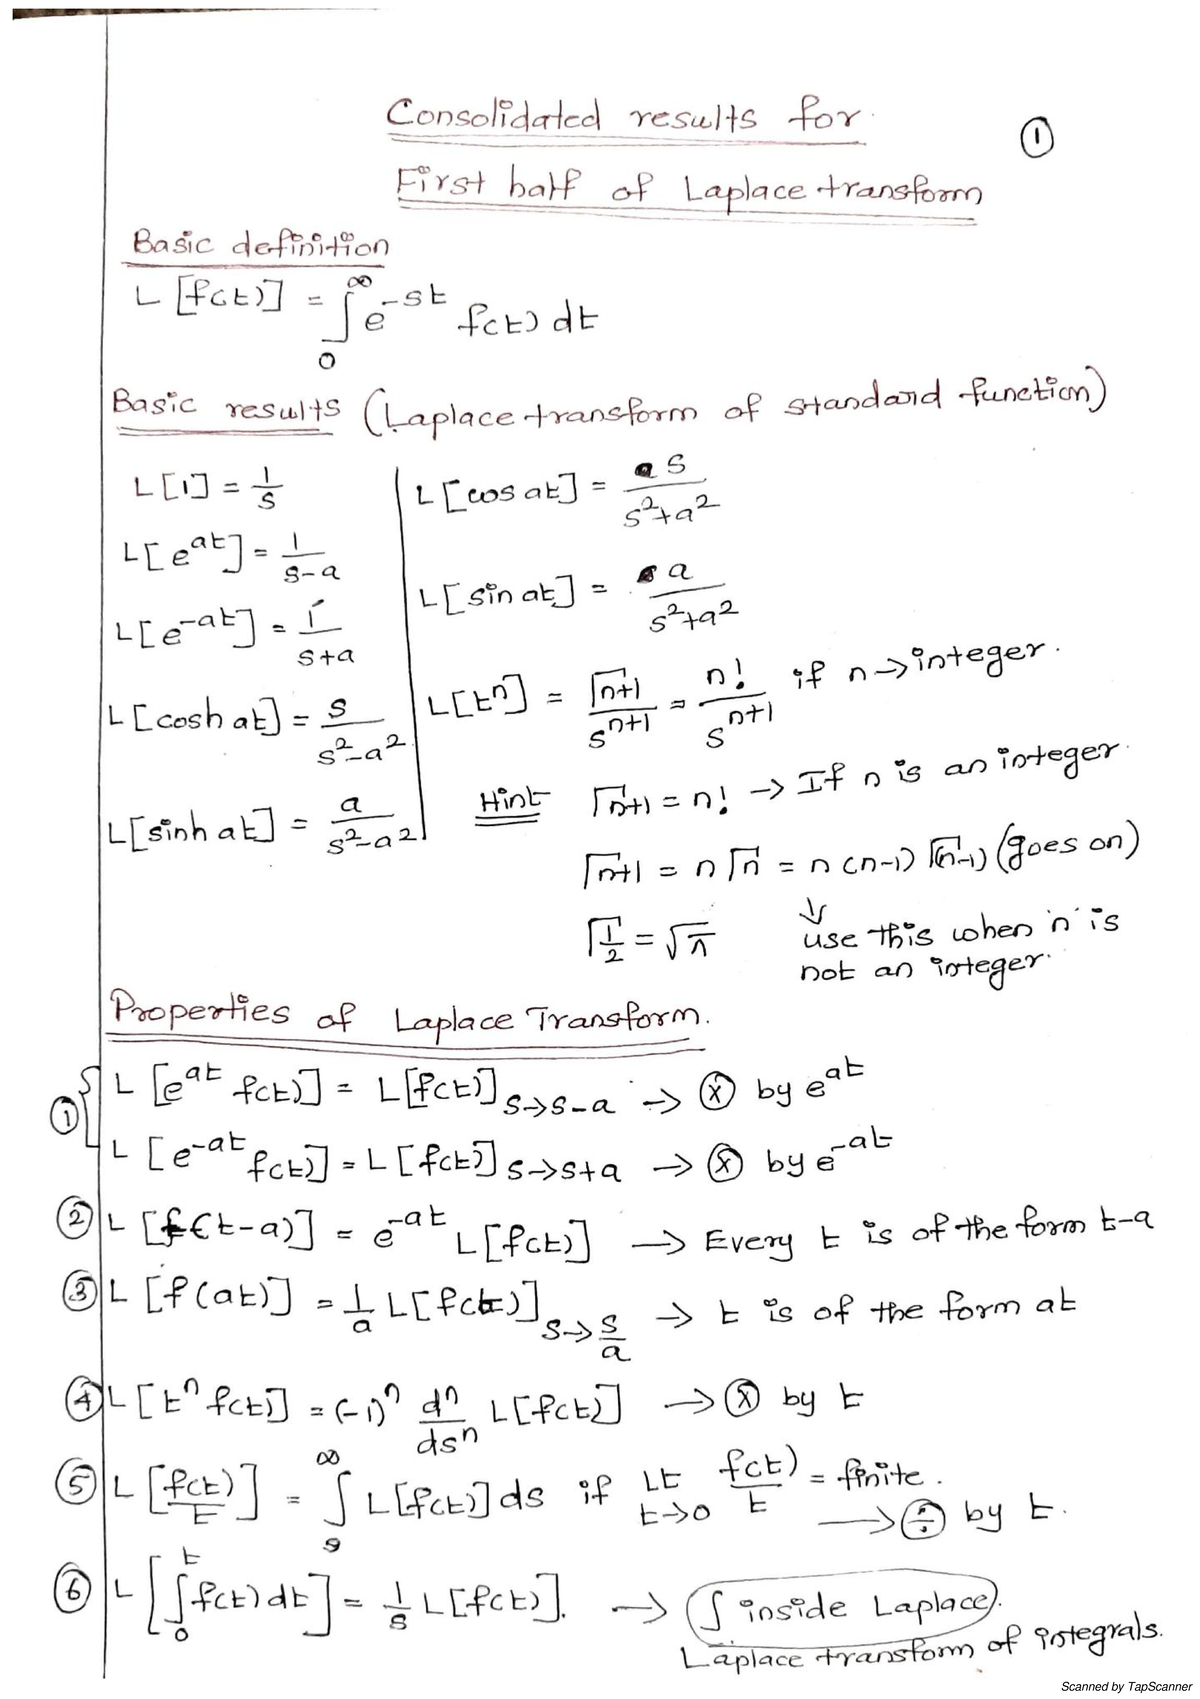 Consolidated results for
①
First half of Laplace transform
Basic definition
L [f(t)] = ∫₀^∞ e^-st f(t) dt
Basic results (Laplace transform of standard function)
L[1] = 1/s
L[e^at] = 1/(s-a)
L[e^-at] = 1/(s+a)
L[cosh at] = s/(s²-a²)
L[sinh at] = a/(s²-a²)
L[cos at] = s/(s²+a²)
L[sin at] = a/(s²+a²)
L[t^n] = Γ(n+1)/s^(n+1) = n!/s^(n+1) if n → integer.
Hint Γ(n+1) = n! → If n is an integer.
Γ(n+1) = n Γn = n (n-1) Γ(n-1) (goes on)
Γ(1/2) = √π
↓
use this when 'n' is
not an integer.
Properties of Laplace Transform.
① L [e^at f(t)] = L[f(t)] s→s-a → ⓧ by e^at
L [e^-at f(t)] = L[f(t)] s→s+a → ⓧ by e^-at
② L [f(t-a)] = e^-at L[f(t)] → Every t is of the form t-a
③ L [f(at)] = 1/a L[f(t)] s→s/a → t is of the form at
④ L [t^n f(t)] = (-1)^n d^n/ds^n L[f(t)] → ⓧ by t
⑤ L [f(t)/t] = ∫ₛ^∞ L[f(t)] ds if Lt t→0 f(t)/t = finite.
→ ⨸ by t.
⑥ L [∫₀^t f(t) dt] = 1/s L[f(t)]. → (∫ inside Laplace).
Laplace transform of integrals.
Scanned by TapScanner